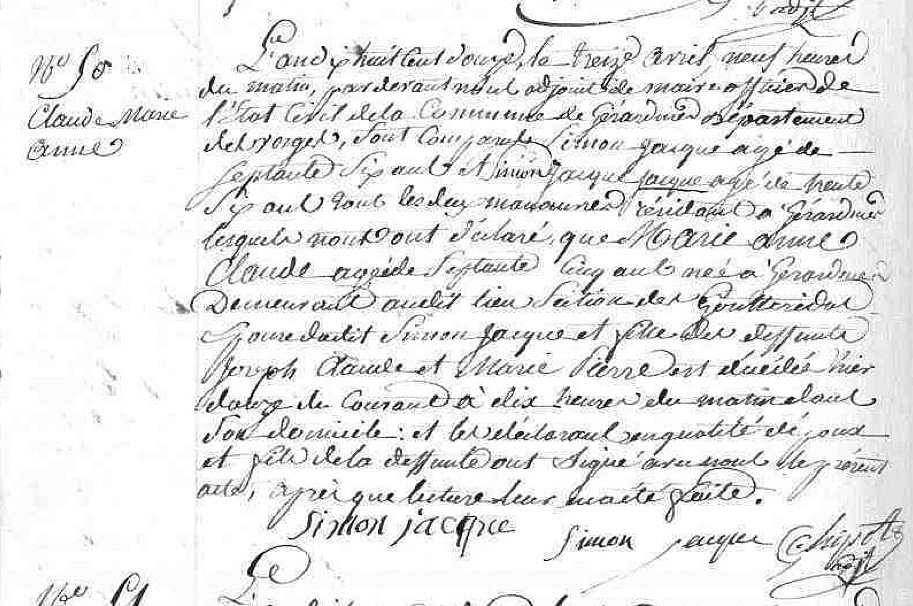 adjt
No 50
Claude Marie
anne
L'an dix huit cent douze, le treize avril, neuf heures
du matin, pardevant nous adjoint de maire officier de
l'Etat Civil de la Commune de Gérardmer Département
des vosges, sont Comparus Simon jacque agé de
septante six ans et Simon jacque jacque agé de trente
six ans tous les deux manouvres résidant a Gérardmer
lesquels nous ont déclaré, que Marie anne
Claude aggée de septante cinq ans née à Gerardmer
Demeurant audit lieu Section des Goutteridos
Epouse dudit Simon Jacque et fille des deffunts
Joseph Claude et Marie Pierre est décédée hier
douze du Courant à dix heures du matin dans
son domicile : et les déclarans en qualité d'époux
et fils de la deffunte ont signé avec nous le présent
acte, après que lecture leur en a été faite.
Simon jacque
Simon jacque
adjt
No 51